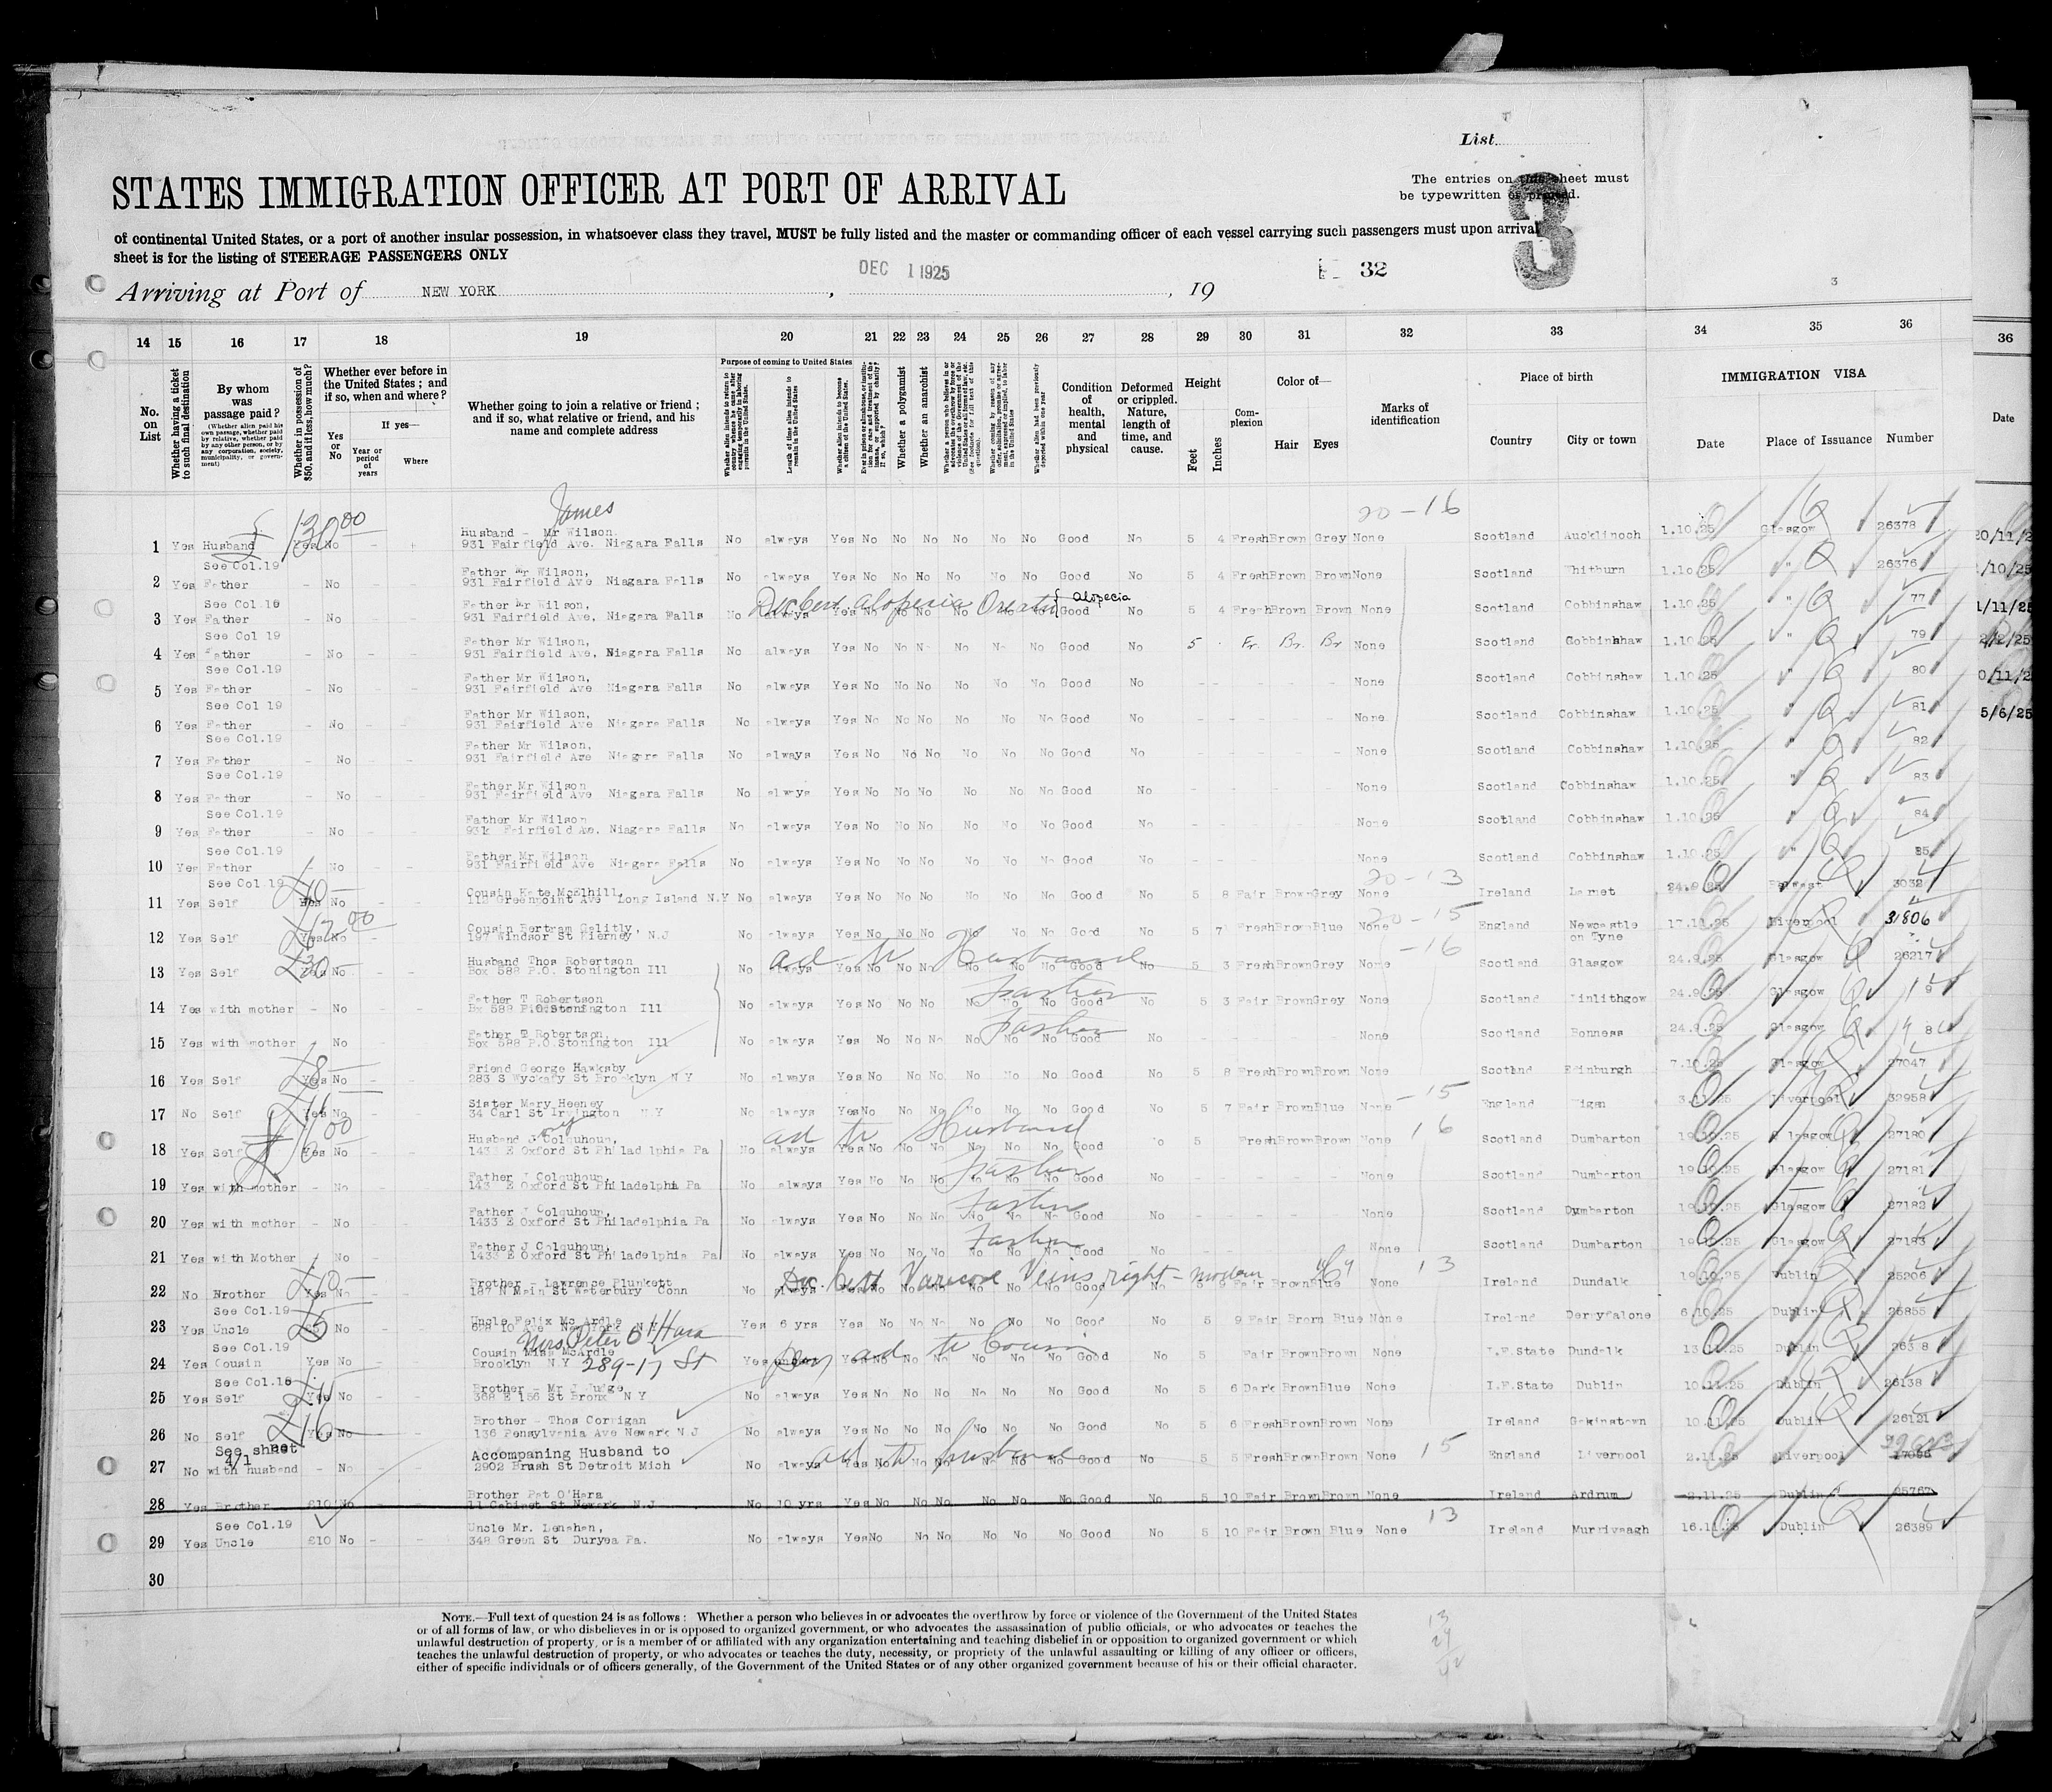 List
The entries on this sheet must
be typewritten or printed.
3
STATES IMMIGRATION OFFICER AT PORT OF ARRIVAL
of continental United States, or a port of another insular possession, in whatsoever class they travel, MUST be fully listed and the master or commanding officer of each vessel carrying such passengers must upon arrival
sheet is for the listing of STEERAGE PASSENGERS ONLY
DEC 1 1925
32
Arriving at Port of NEW YORK, , 19
3
14 15 16 17 18 19 20 21 22 23 24 25 26 27 28 29 30 31 32 33 34 35 36
36
No. on List
Whether having a ticket to such final destination
By whom was passage paid?
(Whether alien paid his own passage, whether paid by relative, whether paid by any other person, or by any corporation, society, municipality, or government)
Whether in possession of $50, and if less, how much?
Whether ever before in the United States; and if so, when and where?
Yes or No
If yes—
Year or period of years
Where
Whether going to join a relative or friend; and if so, what relative or friend, and his name and complete address
Purpose of coming to United States
Length of time alien intends to remain in the United States
Whether alien intends to become a citizen of the United States.
Whether a polygamist
Whether an anarchist
Condition of health, mental and physical
Deformed or crippled. Nature, length of time, and cause.
Height
Feet
Inches
Complexion
Color of—
Hair
Eyes
Marks of identification
Place of birth
Country
City or town
IMMIGRATION VISA
Date
Place of Issuance
Number
Date
James
20-16
130 00
1 Yes Husband Yes No - Husband - Mr Wilson. 931 Fairfield Ave. Niagara Falls No always Yes No No No No No No Good No 5 4 Fresh Brown Grey None Scotland Aucklinoch 1.10.25 Glasgow 26378
See Col.19
2 Yes Father - No Father Mr Wilson, 931 Fairfield Ave Niagara Falls No always Yes No No No No No No Good No 5 4 Fresh Brown Brown None Scotland Whitburn 1.10.25 " 26376
See Col.18
Alopecia
3 Yes Father - No - - Father Mr Wilson, 931 Fairfield Ave, Niagara Falls No always Yes No No No No No No Good No 5 4 Fresh Brown Brown None Scotland Cobbinshaw 1.10.25 " 77
See Col 19
4 Yes Father - No - - Father Mr Wilson, 931 Fairfield Ave, Niagara Falls No always Yes No No No No No No Good No 5 Fr. Br. Br None Scotland Cobbinshaw 1.10.25 " 79
See Col.19
5 Yes Father - No - - Father Mr Wilson, 931 Fairfield Ave Niagara Falls No always Yes No No No No No No Good No - - - - - None Scotland Cobbinshaw 1.10.25 " 80
See Col 19
6 Yes Father - No - - Father Mr Wilson, 931 Fairfield Ave Niagara Falls No always Yes No No No No No No Good No - - - - - None Scotland Cobbinshaw 1.10.25 " 81
See Col.19
7 Yes Father - No - - Father Mr Wilson, 931 Fairfield Ave Niagara Falls No always Yes No No No No No No Good No - - - - - None Scotland Cobbinshaw 1.10.25 " 82
See Col.19
8 Yes Father - No - - Father Mr Wilson 931 Fairfield Ave Niagara Falls No always Yes No No No No No No Good No - - - - - None Scotland Cobbinshaw 1.10.25 " 83
See Col.19
9 Yes Father - No - - Father Mr Wilson 931 Fairfield Ave. Niagara Falls No always Yes No No No No No No Good No - - - - - None Scotland Cobbinshaw 1.10.25 " 84
See Col.19
10 Yes Father - No - - Father Mr Wilson 931 Fairfield Ave Niagara Falls No always Yes No No No No No No Good No - - - - - None Scotland Cobbinshaw 1.10.25 " 85
See Col.19
20-13
11 Yes Self £10 Yes No Cousin Kate McElhill, Greenpoint Ave Long Island N.Y No always Yes No No No No No No Good No 5 8 Fair Brown Grey None Ireland 24.9.25 Belfast
20-15
12 Yes Self Yes No Cousin Bertram Golitly, 197 Windsor St Kierney N.J No always Yes No No No No No Good No 5 7 Fresh Brown Blue None England Newcastle on Tyne 17.11.25 Liverpool 31806
ad to Husband
-16
13 Yes Self £30 Yes No - - Husband Thos Robertson Box 588 P.O. Stonington Ill No always Yes No No No No No No Good No 5 3 Fresh Brown Grey None Scotland Glasgow 24.9.25 Glasgow 26217
Father
14 Yes with mother - No - - Father T Robertson Bx 588 P.O. Stonington Ill No always Yes No No No No No No Good No 5 3 Fair Brown Grey None Scotland Linlithgow 24.9.25 Glasgow
Father
15 Yes with mother No - - Father T Robertson, Box 588 P.O. Stonington Ill No always Yes No No No No No No Good No None Scotland Bonness 24.9.25 Glasgow
16 Yes Self £8 Yes No - - Friend George Hawksby 283 S Wyckafy St Brooklyn N Y No always Yes No No No No No No Good No 5 8 Fresh Brown Brown None Scotland Edinburgh 7.10.25 Glasgow 27047
-15
17 No Self Yes No - Sister Mary Heeney 34 Carl St Irvington N.Y No always Yes No No No No No No Good No 5 7 Fair Brown Blue None England Wigan Liverpool 32958
ad to Husband
16
18 Yes Self Yes No - - Husband J Colquhoun, E Oxford St Philadelphia Pa No always Yes No No No No No No Good No 5 Fresh Brown Brown None Scotland Dumbarton 19.10.25 Glasgow 27180
Father
19 Yes with mother - No - - Father J Colquhoun, E Oxford St Philadelphia Pa No always Yes No No No No No No Good No None Scotland Dumbarton 19.10.25 Glasgow 27181
Father
20 Yes with mother - No - - Father J Colquhoun, 1433 E Oxford St Philadelphia Pa No always Yes No No No No No No Good No - - - - - None Scotland Dumbarton 19.10.25 Glasgow 27182
Father
21 Yes with Mother No Father J Colquhoun, 1433 E Oxford St Philadelphia Pa No always Yes No No No No No No Good No None Scotland Dumbarton 19.10.25 Glasgow 27183
Varicose Veins right
13
22 No Brother £10 Yes No Brother - Lawrence Plunkett 187 N Main St Waterbury Conn No always Yes No No No No No No Good No 5 Fair Brown Blue None Ireland Dundalk 19.10.25 Dublin 25206
See Col.19
23 Yes Uncle £5 No Uncle Felix Mc Ardle New York N Y Yes 6 yrs Yes No No No No No No Good No 5 9 Fair Brown Blue None Ireland Derryfalone 6.10.25 Dublin 25855
See Col.19
Mrs. Peter O'Hara
24 Yes Cousin Yes No - - Cousin Miss McArdle Brooklyn N.Y 289-17 St Yes ad to Cousin No No No No No No Good No 5 Fair Brown Brown None I.F.State Dundalk Dublin
See Col.18
25 Yes Self Yes No Brother - Mr J Judge, 368 E 156 St Bronx N Y No always Yes No No No No No No Good No 5 6 Dark Brown Blue None I.F.State Dublin 10.11.25 Dublin 26138
26 No Self £16 Yes No Brother - Thos Corrigan 136 Pensylvania Ave Newark N J No always Yes No No No No No No Good No 5 6 Fresh Brown Brown None Ireland 10.11.25 Dublin 26121
See sheet 4/1
15
27 No with husband - No - - Accompaning Husband to 2902 Brush St Detroit Mich No always ad to husband Yes No No No No No No Good No 5 5 Fresh Brown Brown None England Liverpool 2.11.25 Liverpool
28 Yes Brother £10 No Brother Pat O'Hara 11 Cabinet St Newark N.J No 10 yrs Yes No No No No No No Good No 5 10 Fair Brown Brown None Ireland Ardrum 2.11.25 Dublin 25767
See Col.19
13
29 Yes Uncle £10 No - - Uncle Mr. Lenahan, 348 Green St Duryea Pa. No always Yes No No No No No No Good No 5 10 Fair Brown Blue None Ireland Murriveagh 16.11.25 Dublin 26389
30
NOTE.—Full text of question 24 is as follows: Whether a person who believes in or advocates the overthrow by force or violence of the Government of the United States
or of all forms of law, or who disbelieves in or is opposed to organized government, or who advocates the assassination of public officials, or who advocates or teaches the
unlawful destruction of property, or is a member of or affiliated with any organization entertaining and teaching disbelief in or opposition to organized government or which
teaches the unlawful destruction of property, or who advocates or teaches the duty, necessity, or propriety of the unlawful assaulting or killing of any officer or officers,
either of specific individuals or of officers generally, of the Government of the United States or of any other organized government because of his or their official character.